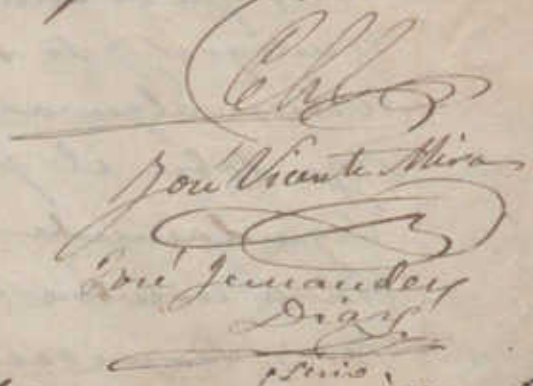 José Vicente Mira
José Fernandez
Diaz